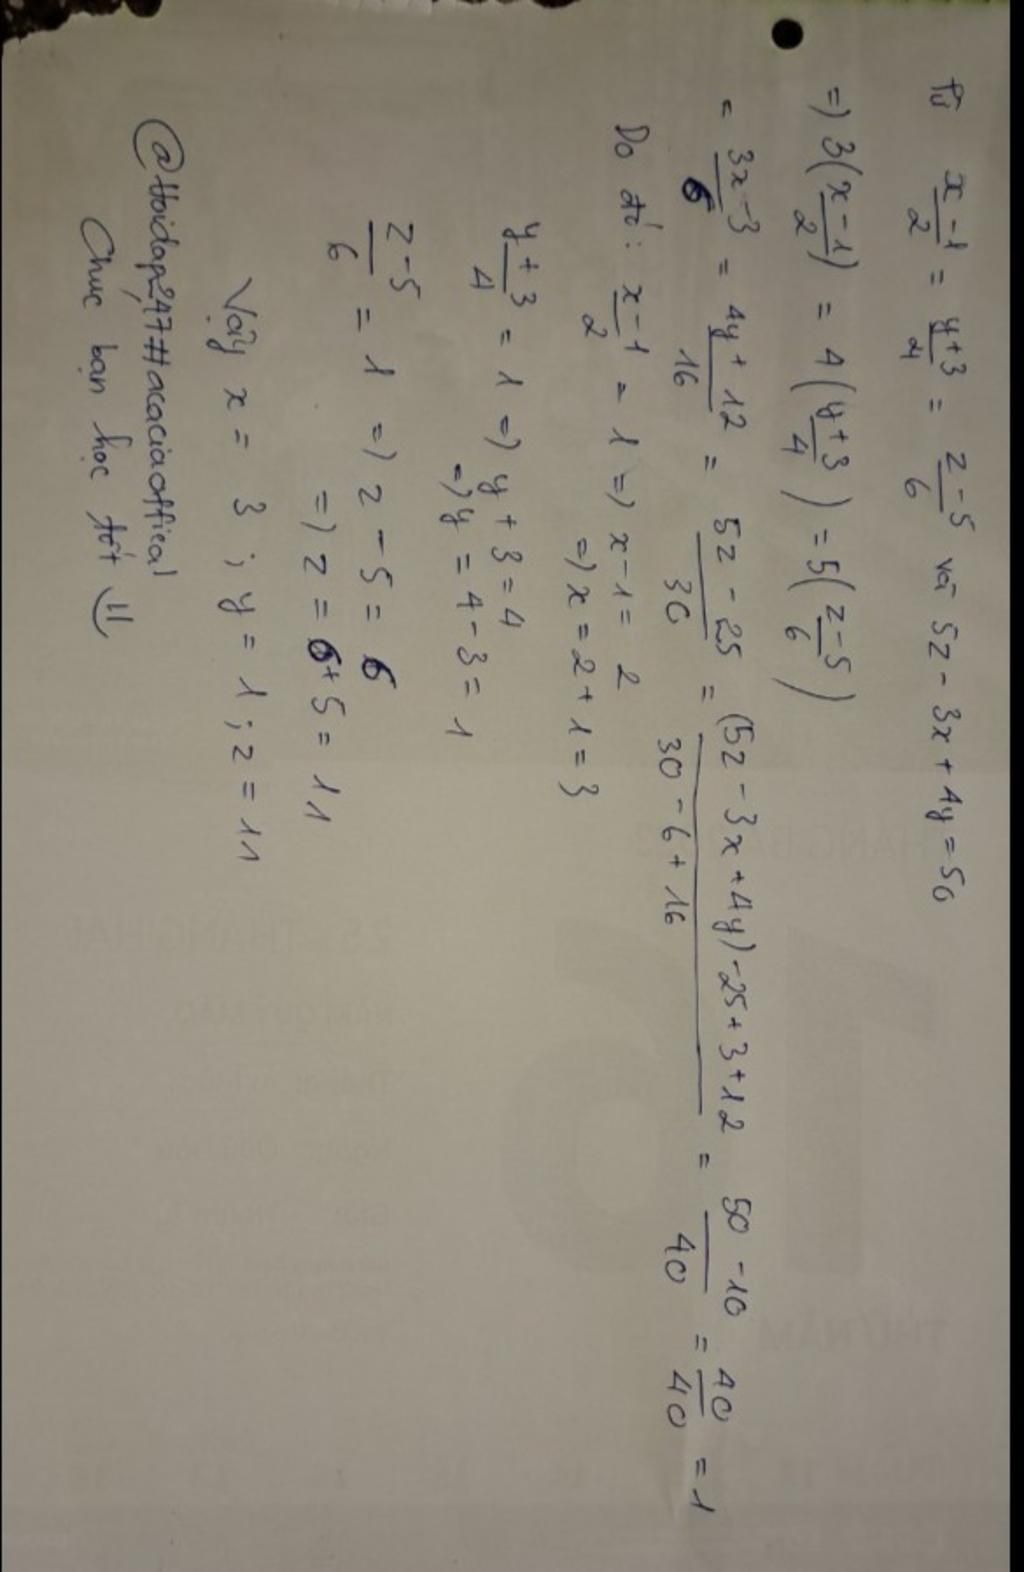 Từ x-1/2 = y+3/4 = z-5/6 và 5z - 3x + 4y = 50
=) 3(x-1/2) = 4(y+3/4) = 5(z-5/6)
= 3x-3/6 = 4y+12/16 = 5z-25/30 = (5z-3x+4y)-25+3+12/30-6+16 = 50-10/40 = 40/40 = 1
Do đó: x-1/2 = 1 =) x-1 = 2
=) x = 2+1 = 3
y+3/4 = 1 =) y+3 = 4
=) y = 4-3 = 1
z-5/6 = 1 =) z-5 = 6
=) z = 6+5 = 11
Vậy x = 3; y = 1; z = 11
@Hoidap247#acaciaoffical
Chúc bạn học tốt =))